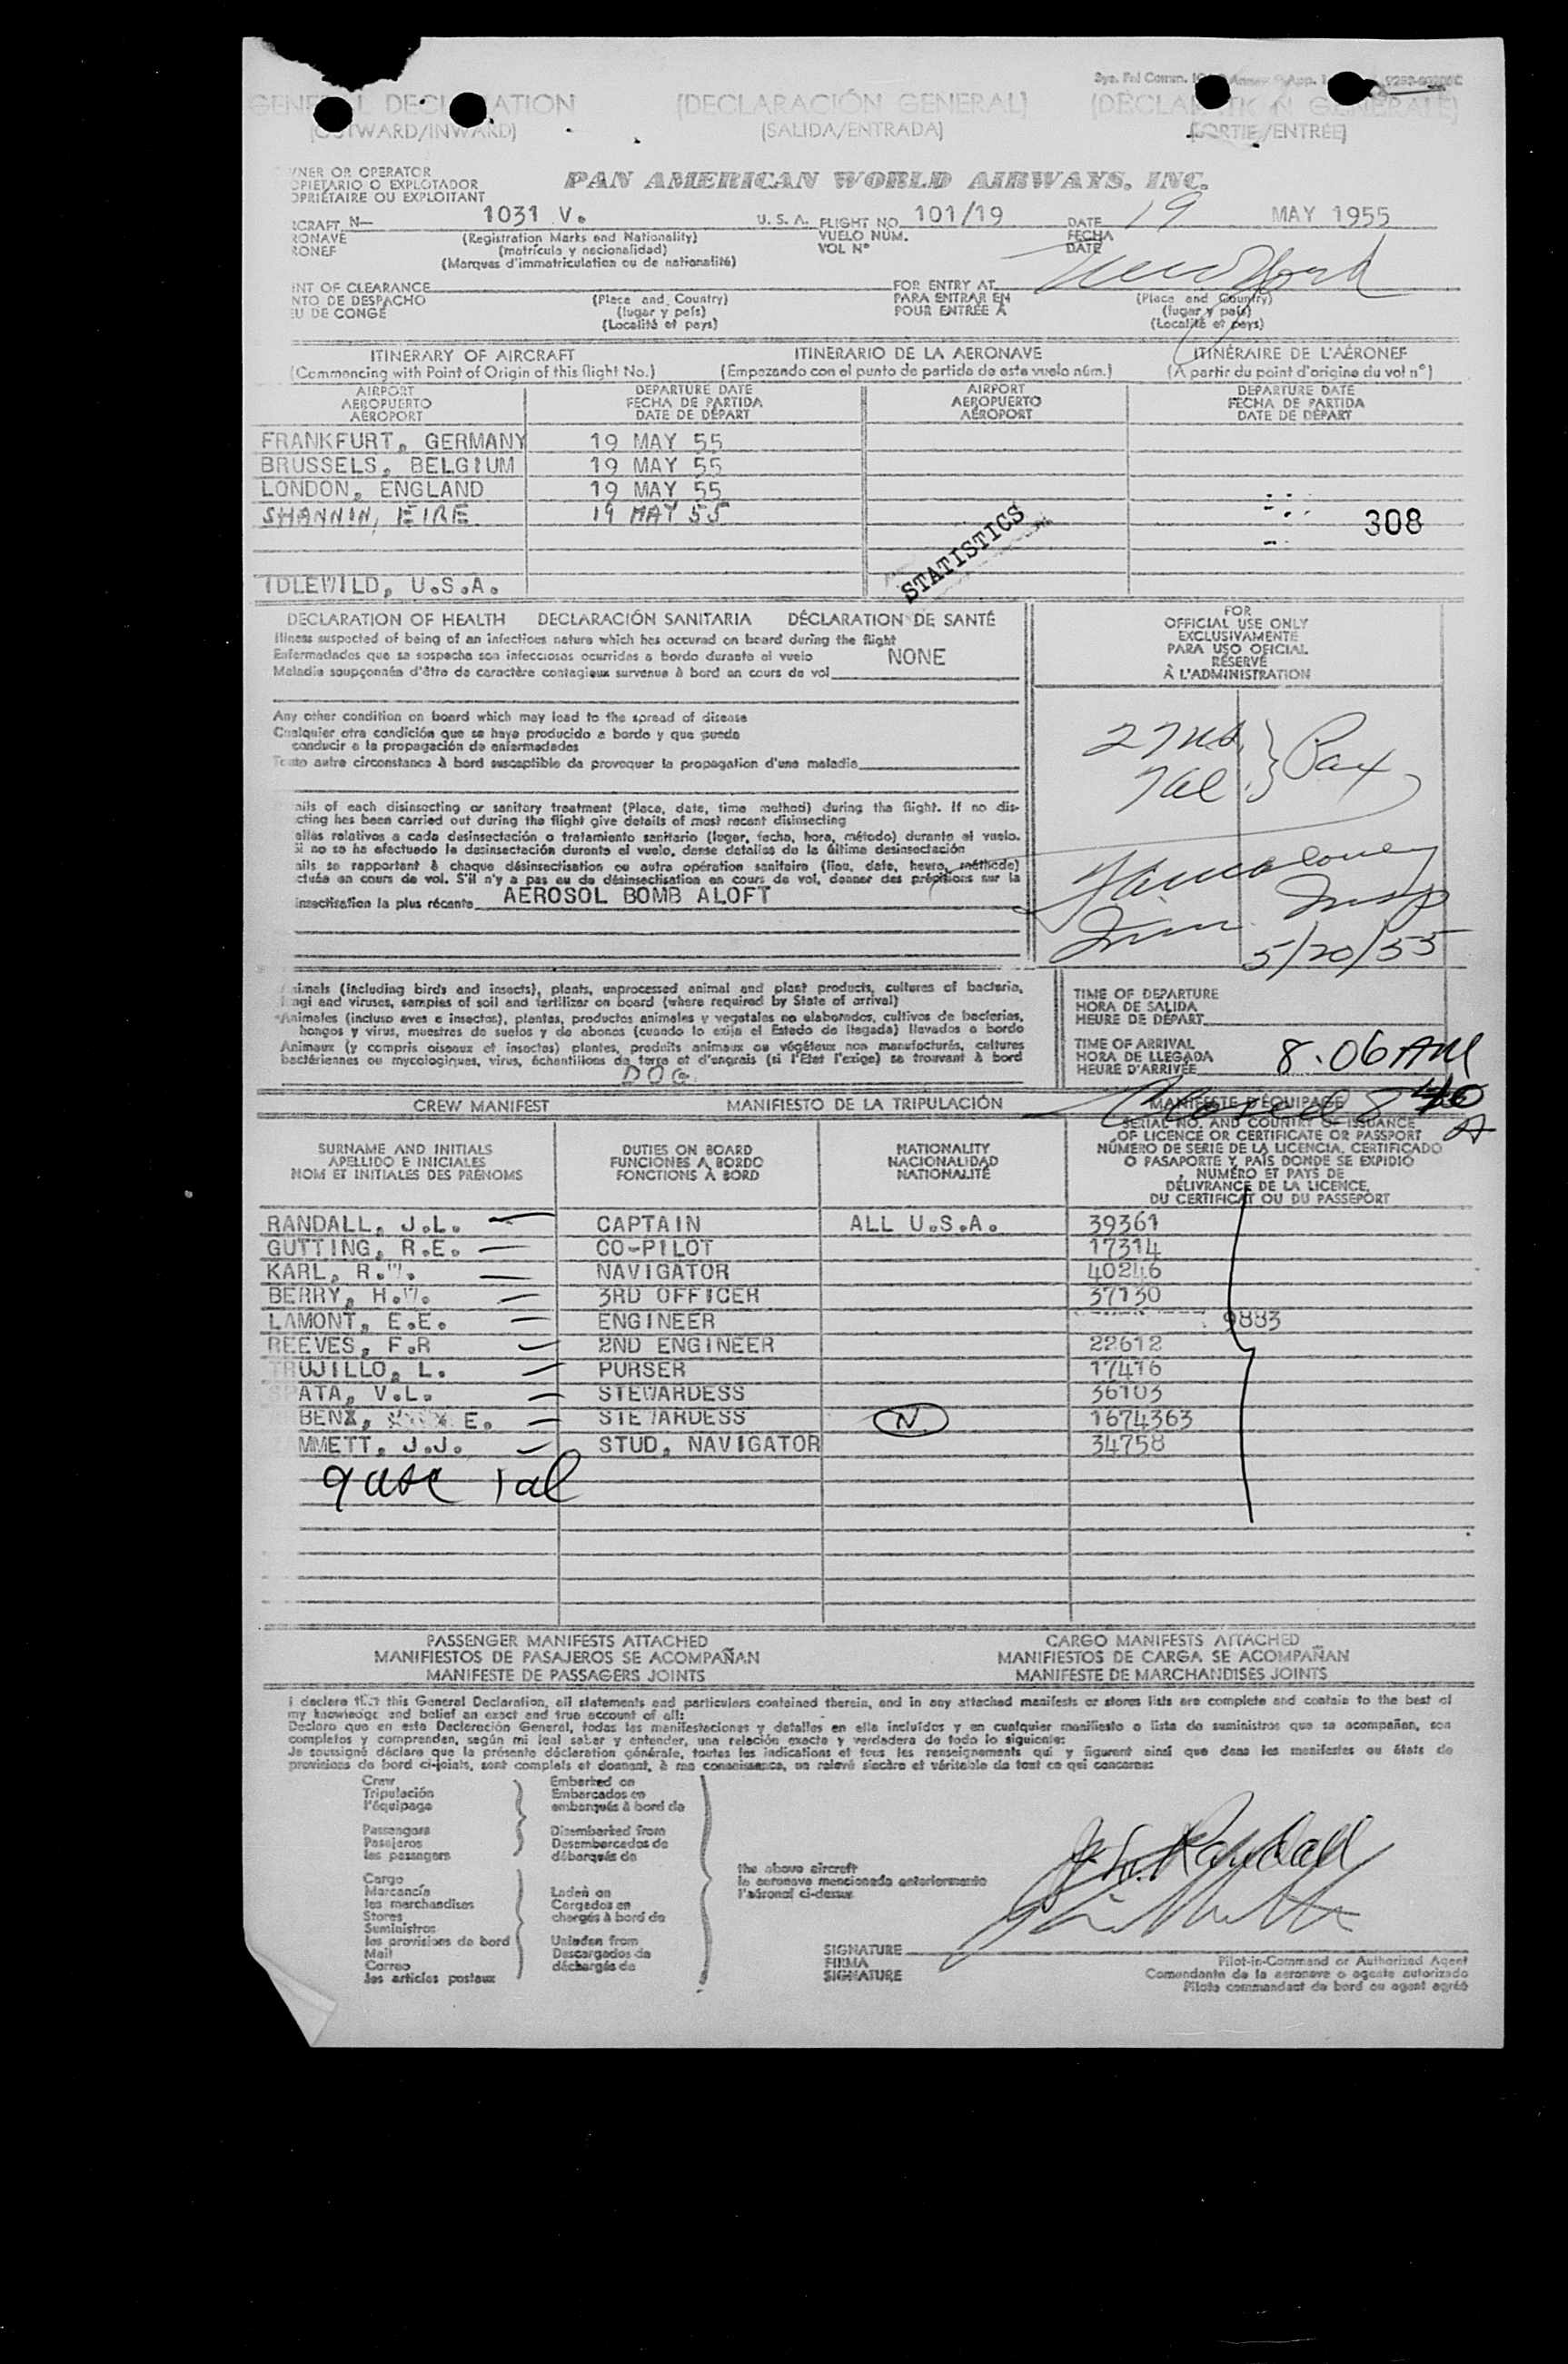 GENERAL DECLARATION (DECLARACIÓN GENERAL) (DÉCLARATION GENERALE)
(OUTWARD/INWARD) (SALIDA/ENTRADA) (SORTIE/ENTRÉE)
OWNER OR OPERATOR
OPIETARIO O EXPLOTADOR PAN AMERICAN WORLD AIRWAYS, INC.
OPRIÉTAIRE OU EXPLOITANT
RCRAFT N— 1031 V. U. S. A. FLIGHT NO. 101/19 DATE 19 MAY 1955
RONAVE (Registration Marks and Nationality) VUELO NÚM. FECHA
RONEF (matrícula y nacionalidad) VOL Nº DATE
(Marques d'immatriculation ou de nationalité)
INT OF CLEARANCE FOR ENTRY AT New York
NTO DE DESPACHO (Place and Country) PARA ENTRAR EN (Place and Country)
EU DE CONGÉ (lugar y país) POUR ENTRÉE À (lugar y país)
(Localité et pays) (Localité et pays)
ITINERARY OF AIRCRAFT ITINERARIO DE LA AERONAVE ITINÉRAIRE DE L'AÉRONEF
(Commencing with Point of Origin of this flight No.) (Empezando con el punto de partida de este vuelo núm.) (À partir du point d'origine du vol nº)
AIRPORT DEPARTURE DATE AIRPORT DEPARTURE DATE
AEROPUERTO FECHA DE PARTIDA AEROPUERTO FECHA DE PARTIDA
AÉROPORT DATE DE DÉPART AÉROPORT DATE DE DÉPART
FRANKFURT, GERMANY 19 MAY 55
BRUSSELS, BELGIUM 19 MAY 55
LONDON, ENGLAND 19 MAY 55
SHANNIN, EIRE 19 MAY 55
308
STATISTICS
IDLEWILD, U.S.A.
DECLARATION OF HEALTH DECLARACIÓN SANITARIA DÉCLARATION DE SANTÉ
Illness suspected of being of an infectious nature which has occured on board during the flight
Enfermedades que se sospecha son infecciosas ocurridas a bordo durante el vuelo NONE
Maladie soupçonnée d'être de caractère contagieux survenue à bord en cours de vol
FOR
OFFICIAL USE ONLY
EXCLUSIVAMENTE
PARA USO OFICIAL
RÉSERVÉ
À L'ADMINISTRATION
Any other condition on board which may lead to the spread of disease
Cualquier otra condición que se haya producido a bordo y que pueda
conducir a la propagación de enfermedades
Toute autre circonstance à bord susceptible de provoquer la propagation d'une maladie
27 usc } Pax
7al
ails of each disinsecting or sanitary treatment (Place, date, time method) during the flight. If no dis-
cting has been carried out during the flight give details of most recent disinsecting
alles relativos a cada desinsectación o tratamiento sanitario (lugar, fecha, hora, método) durante el vuelo.
Si no se ha efectuado la desinsectación durante el vuelo, dense detalles de la última desinsectación
ails se rapportant à chaque désinsectisation ou autre opération sanitaire (lieu, date, heure, méthode)
ctuée en cours de vol. S'il n'y a pas eu de désinsectisation en cours de vol, donner des précisions sur la
insectisation la plus récente AEROSOL BOMB ALOFT
Imm. Insp
5/20/55
nimals (including birds and insects), plants, unprocessed animal and plant products, cultures of bacteria,
ngi and viruses, samples of soil and fertilizer on board (where required by State of arrival)
Animales (incluso aves e insectos), plantas, productos animales y vegetales no elaborados, cultivos de bacterias,
hongos y virus, muestras de suelos y de abonos (cuando lo exija el Estado de llegada) llevados a bordo
Animaux (y compris oiseaux et insectes) plantes, produits animaux ou végétaux non manufacturés, cultures
bactériennes ou mycologiques, virus, échantillons de terre et d'engrais (si l'Etat l'exige) se trouvant à bord
DOG
TIME OF DEPARTURE
HORA DE SALIDA
HEURE DE DÉPART
TIME OF ARRIVAL
HORA DE LLEGADA 8.06 AM
HEURE D'ARRIVÉE
CREW MANIFEST MANIFIESTO DE LA TRIPULACIÓN MANIFESTE D'ÉQUIPAGE
SURNAME AND INITIALS DUTIES ON BOARD NATIONALITY SERIAL NO. AND COUNTRY OF ISSUANCE
APELLIDO E INICIALES FUNCIONES A BORDO NACIONALIDAD OF LICENCE OR CERTIFICATE OR PASSPORT
NOM ET INITIALES DES PRÉNOMS FONCTIONS À BORD NATIONALITÉ NÚMERO DE SERIE DE LA LICENCIA, CERTIFICADO
O PASAPORTE Y PAÍS DONDE SE EXPIDIÓ
NUMÉRO ET PAYS DE
DÉLIVRANCE DE LA LICENCE,
DU CERTIFICAT OU DU PASSEPORT
RANDALL, J.L. CAPTAIN ALL U.S.A. 39361
GUTTING, R.E. CO-PILOT 17314
KARL, R.W. NAVIGATOR 40246
BERRY, H.W. 3RD OFFICER 37130
LAMONT, E.E. ENGINEER 9883
REEVES, F.R 2ND ENGINEER 22612
TRUJILLO, L. PURSER 17416
SPATA, V.L. STEWARDESS 36103
BENX, E. STEWARDESS N 1674363
MMETT, J.J. STUD. NAVIGATOR 34758
9 usc 1 al
PASSENGER MANIFESTS ATTACHED CARGO MANIFESTS ATTACHED
MANIFIESTOS DE PASAJEROS SE ACOMPAÑAN MANIFIESTOS DE CARGA SE ACOMPAÑAN
MANIFESTE DE PASSAGERS JOINTS MANIFESTE DE MARCHANDISES JOINTS
I declare that this General Declaration, all statements and particulars contained therein, and in any attached manifests or stores lists are complete and contain to the best of
my knowledge and belief an exact and true account of all:
Declaro que en esta Declaración General, todas las manifestaciones y detalles en ella incluídos y en cualquier manifiesto o lista de suministros que se acompañen, son
completos y comprenden, según mi leal saber y entender, una relación exacta y verdadera de todo lo siguiente:
Je soussigné déclare que la présente déclaration générale, toutes les indications et tous les renseignements qui y figurent ainsi que dans les manifestes ou états de
provisions de bord ci-joints, sont complets et donnent, à ma connaissance, un relevé sincère et véritable de tout ce qui concerne:
Crew Embarked on
Tripulación Embarcados en
l'équipage embarqués à bord de
Passengers Disembarked from
Pasajeros Desembarcados de
les passagers débarqués de
Cargo the above aircraft
Mercancía Laden on la aeronave mencionada anteriormente
les marchandises Cargados en l'aéronef ci-dessus
Stores chargés à bord de
Suministros
les provisions de bord Unladen from
Mail Descargados de
Correo déchargés de
les articles postaux
J. L. Randall
SIGNATURE
FIRMA
SIGNATURE
Pilot-in-Command or Authorized Agent
Comandante de la aeronave o agente autorizado
Pilote commandant de bord ou agent agréé